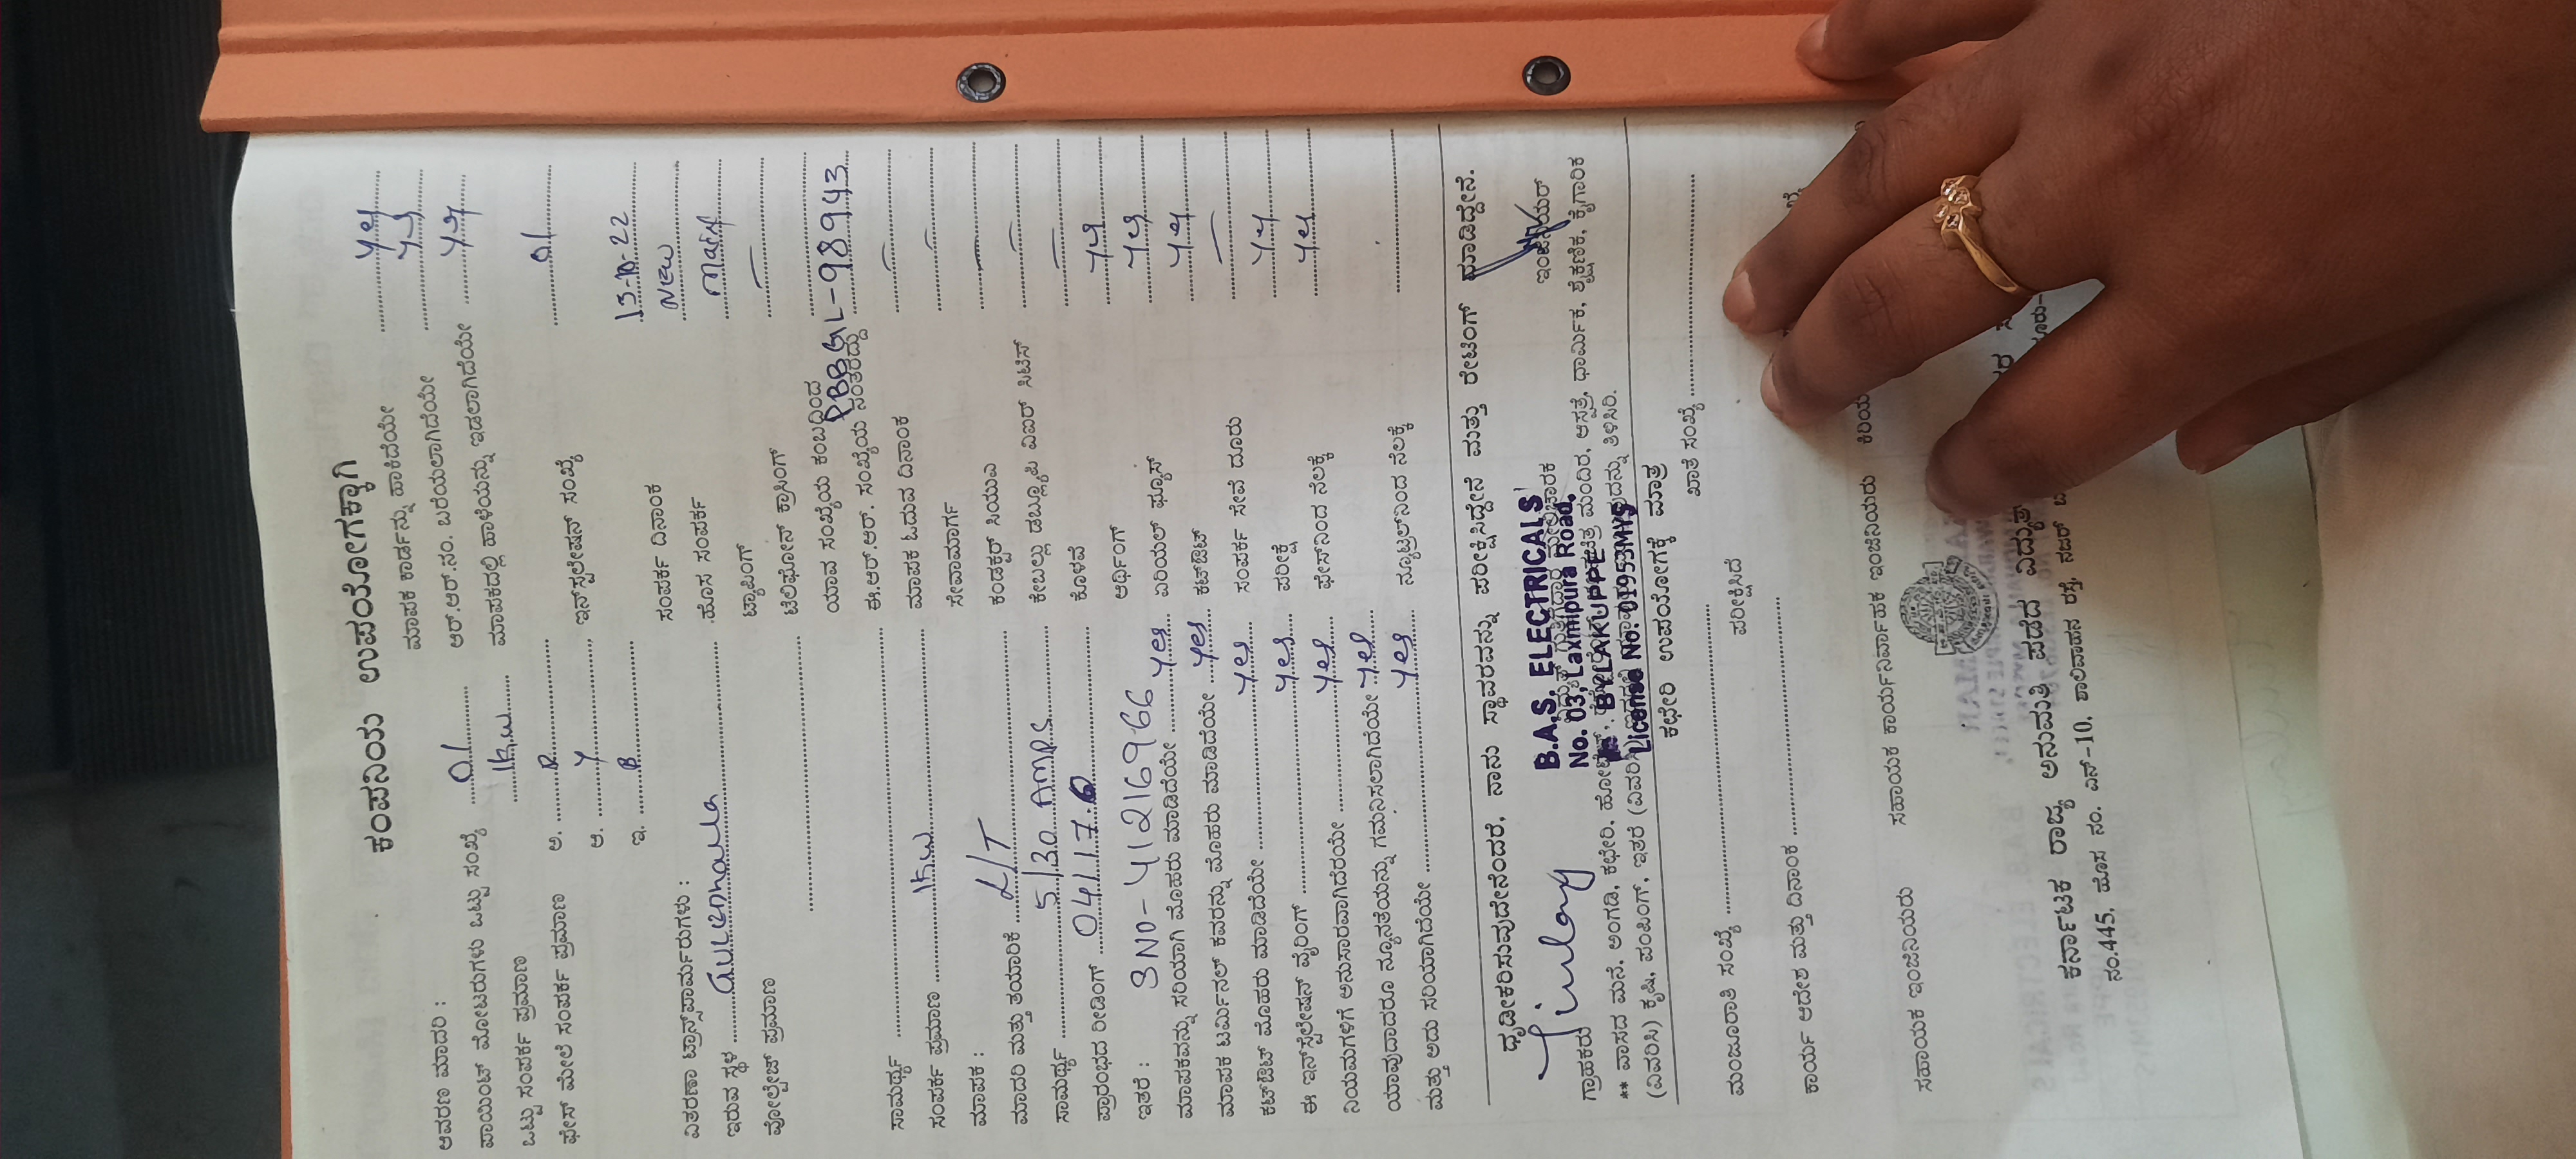 ಕಂಪನಿಯ ಉಪಯೋಗಕ್ಕಾಗಿ
ಆವರಣ ಮಾದರಿ : ಮಾಪಕ ಕಾರ್ಡನ್ನು ಹಾಕಿದೆಯೇ yes
ಪಾಯಿಂಟ್ ಮೋಟರುಗಳು ಒಟ್ಟು ಸಂಖ್ಯೆ 01 ಆರ್.ಆರ್.ನಂ. ಬರೆಯಲಾಗಿದೆಯೇ yes
ಒಟ್ಟು ಸಂಪರ್ಕ ಪ್ರಮಾಣ 1kw ಮಾಪಕದಲ್ಲಿ ಹಾಳೆಯನ್ನು ಇಡಲಾಗಿದೆಯೇ yes
ಫೇಸ್ ಮೇಲೆ ಸಂಪರ್ಕ ಪ್ರಮಾಣ ಅ. R
ಆ. Y ಇನ್‌ಸ್ಟಲೇಷನ್ ಸಂಖ್ಯೆ 01
ಇ. B
ಸಂಪರ್ಕ ದಿನಾಂಕ 13-10-22
ವಿತರಣಾ ಟ್ರಾನ್ಸ್‌ಫಾರ್ಮರುಗಳು : ಹೊಸ ಸಂಪರ್ಕ NEW
ಇರುವ ಸ್ಥಳ ಟ್ಯಾಪಿಂಗ್ main
ವೋಲ್ಟೇಜ್ ಪ್ರಮಾಣ ಟೆಲಿಫೋನ್ ಕ್ರಾಸಿಂಗ್ —
ಯಾವ ಸಂಖ್ಯೆಯ ಕಂಬದಿಂದ
ಈ.ಆರ್.ಆರ್. ಸಂಖ್ಯೆಯ ನಂತರದ್ದು PBBGL-989943
ಸಾಮರ್ಥ್ಯ ಮಾಪಕ ಓದುವ ದಿನಾಂಕ —
ಸಂಪರ್ಕ ಪ್ರಮಾಣ 1kw ಸೇವಾಮಾರ್ಗ —
ಮಾಪಕ : ಕಂಡಕ್ಟರ್ ಸಿಯುಎ —
ಮಾದರಿ ಮತ್ತು ತಯಾರಿಕೆ L/T ಕೇಬಲ್ಲು ಡಬ್ಲ್ಯೂಪಿ ಎಐರ್ ಸಿಟಿಸ್ —
ಸಾಮರ್ಥ್ಯ 5/30 AMPS ಕೊಳವೆ —
ಪ್ರಾರಂಭದ ರೀಡಿಂಗ್ ಆರ್ಥಿಂಗ್ yes
ಇತರೆ : SNO- 41216966 ಏರಿಯಲ್ ಫ್ಯೂಸ್ yes
ಮಾಪಕವನ್ನು ಸರಿಯಾಗಿ ಮೊಹರು ಮಾಡಿದೆಯೇ yes ಕಟ್‌ಔಟ್ yes
ಮಾಪಕ ಟರ್ಮಿನಲ್ ಕವರನ್ನು ಮೊಹರು ಮಾಡಿದೆಯೇ yes ಸಂಪರ್ಕ ಸೇವೆ ದೂರು —
ಕಟ್‌ಔಟ್ ಮೊಹರು ಮಾಡಿದೆಯೇ yes ಪರೀಕ್ಷೆ yes
ಈ ಇನ್‌ಸ್ಟಲೇಷನ್ ವೈರಿಂಗ್ yes ಫೇಸ್‌ನಿಂದ ನೆಲಕ್ಕೆ yes
ನಿಯಮಗಳಿಗೆ ಅನುಸಾರವಾಗಿದೆರೆಯೇ yes
ಯಾವುದಾದರೂ ನ್ಯೂನತೆಯನ್ನು ಗಮನಿಸಲಾಗಿದೆಯೇ yes ನ್ಯೂಟ್ರಲ್‌ನಿಂದ ನೆಲಕ್ಕೆ
ಮತ್ತು ಅದು ಸರಿಯಾಗಿದೆಯೇ yes
ಧೃಡೀಕರಿಸುವುದೇನೆಂದರೆ, ನಾನು ಸ್ಥಾವರವನ್ನು ಪರೀಕ್ಷಿಸಿದ್ದೇನೆ ಮತ್ತು ರೇಟಿಂಗ್ ಮಾಡಿದ್ದೇನೆ.
B.A.S. ELECTRICALS
No. 03, Laxmipura Road,
BYLAKUPPE
License No. 01953MYS
ಗ್ರಾಹಕರು ಇಂಜಿನಿಯರ್
** ವಾಸದ ಮನೆ, ಅಂಗಡಿ, ಕಛೇರಿ, ಹೋಟೆಲ್, ಮಂದಿರ, ಆಸ್ಪತ್ರೆ, ಧಾರ್ಮಿಕ, ಶೈಕ್ಷಣಿಕ, ಕೈಗಾರಿಕ
(ವಿವರಿಸಿ) ಕೃಷಿ, ಪಂಪಿಂಗ್, ಇತರೆ ತಿಳಿಸಿರಿ.
ಕಛೇರಿ ಉಪಯೋಗಕ್ಕೆ ಮಾತ್ರ
ಮಂಜೂರಾತಿ ಸಂಖ್ಯೆ ಖಾತೆ ಸಂಖ್ಯೆ
ಪರೀಕ್ಷಿಸಿದೆ
ಕಾರ್ಯ ಆದೇಶ ಮತ್ತು ದಿನಾಂಕ
ಸಹಾಯಕ ಇಂಜಿನಿಯರು ಸಹಾಯಕ ಕಾರ್ಯನಿರ್ವಾಹಕ ಇಂಜಿನಿಯರು ಕಿರಿಯ
ಕರ್ನಾಟಕ ರಾಜ್ಯ ಅನುಮತಿ ಪಡೆದ
ನಂ.445, ಹೊಸ ನಂ. ಎನ್-10, ಶಾಲಿವಾಹನ ರಸ್ತೆ,